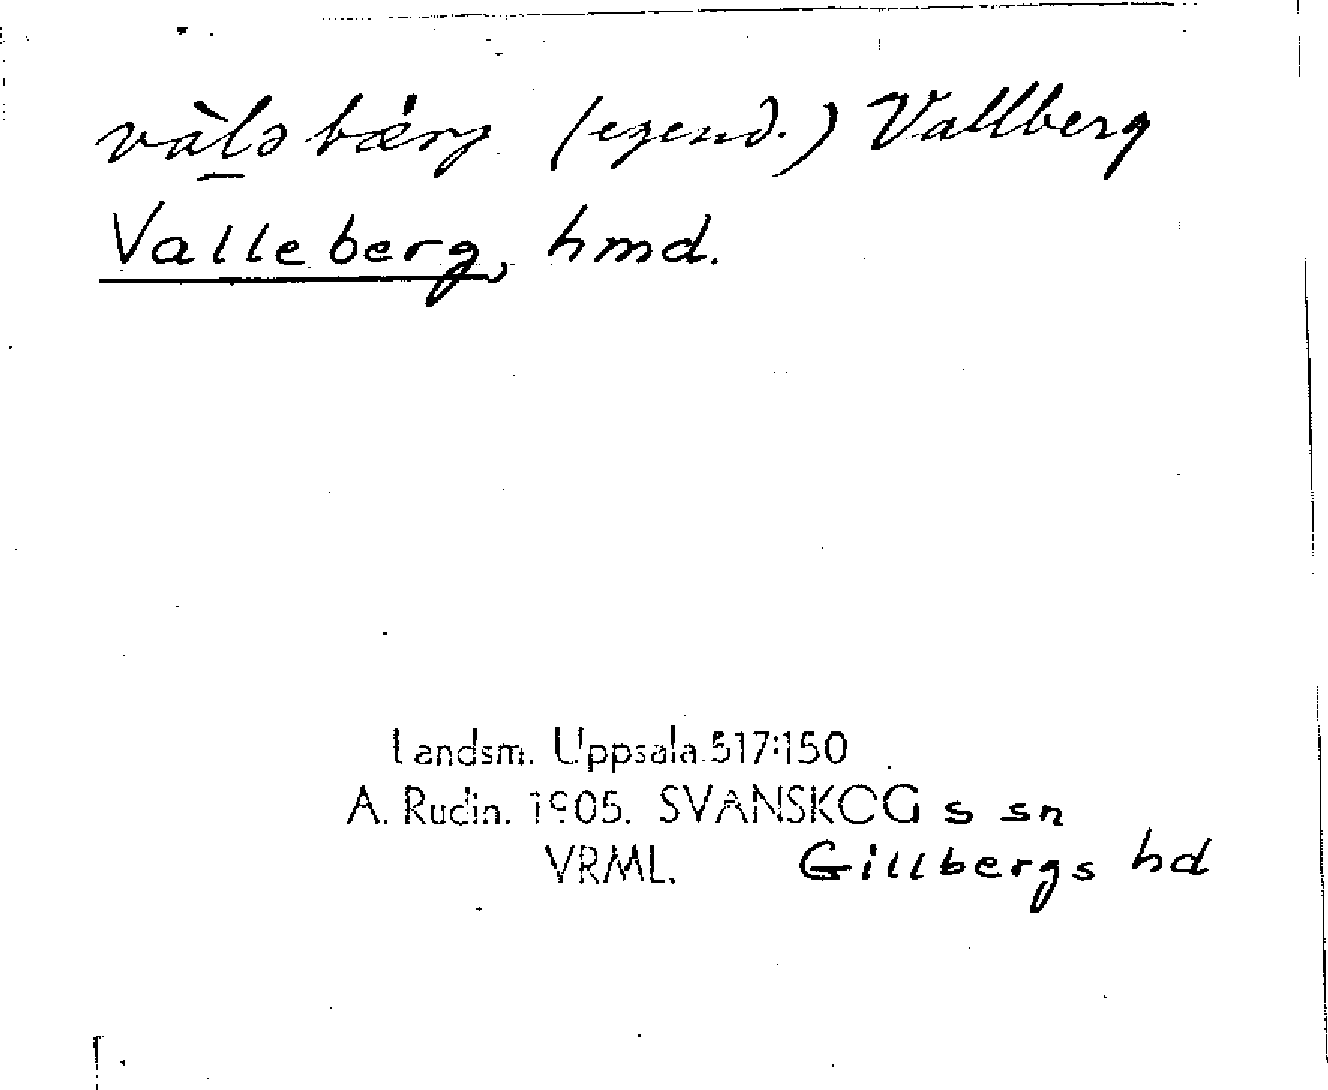 vàlə bǽrg (egend.) Vallberg
Valleberg, hmd.
Landsm. Uppsala 517:150
A. Rudin. 1905. SVANSKOG s sn
VRML. Gillbergs hd